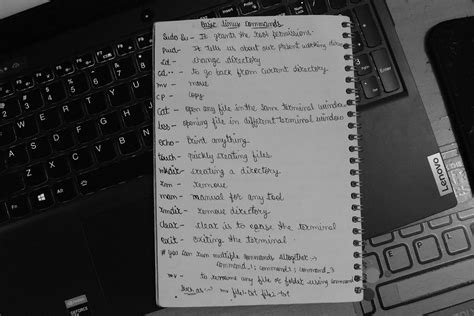 Basic linux commands
Sudo su - It grants the root permissions.
Pwd - It tells us about our present working direc
cd - change directory
cd.. - to go back from current directory
mv - move
cp - copy
Cat - open any file in the same terminal window
less - opening file in different terminal window
echo - print anything.
touch - quickly creating files
mkdir - creating a directory
rm - remove
man - manual for any tool
rmdir - remove directory
clear - clear is to the terminal
exit - exiting the terminal
# you can run multiple commands altogether →
command_1; command_2; command_3
mv - to rename any file or folder using command
Such as :- mv file1.txt file2.txt
Lenovo